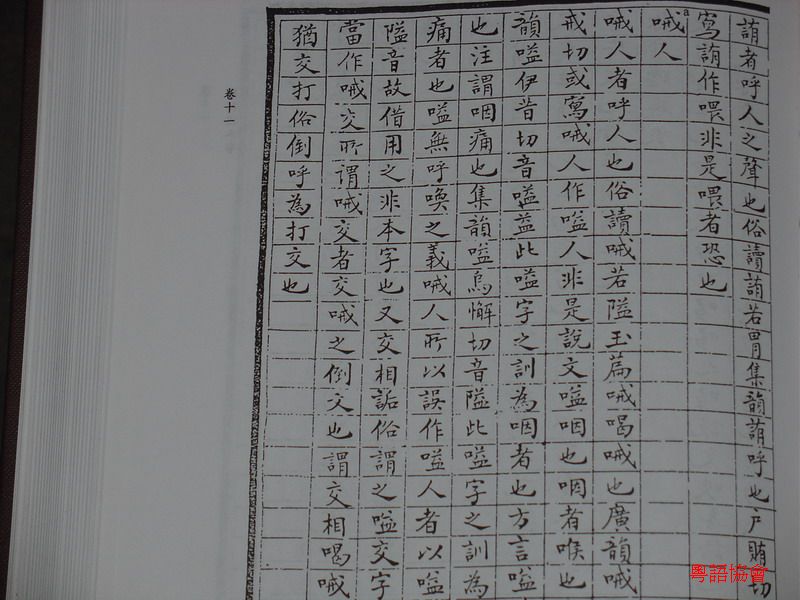 詴者呼人之聲也俗讀詴若胃集韻詴呼也戶賄切
寫詴作喂非是喂者恐也
a
㖑人
㖑人者呼人也俗讀㖑若隘玉篇㖑喝㖑也廣韻㖑
戒切或寫㖑人作嗌人非是說文嗌咽也咽者喉也
韻嗌伊昔切音嗌益此嗌字之訓為咽者也方言嗌
也注謂咽痛也集韻嗌烏懈切音隘此嗌字之訓為
痛者也嗌無呼喚之義㖑人所以誤作嗌人者以嗌
隘音故借用之非本字也又交相詬俗謂之嗌交字
當作㖑交所謂㖑交者交㖑之倒文也謂交相喝㖑
猶交打俗倒呼為打交也
卷十一
粵語協會